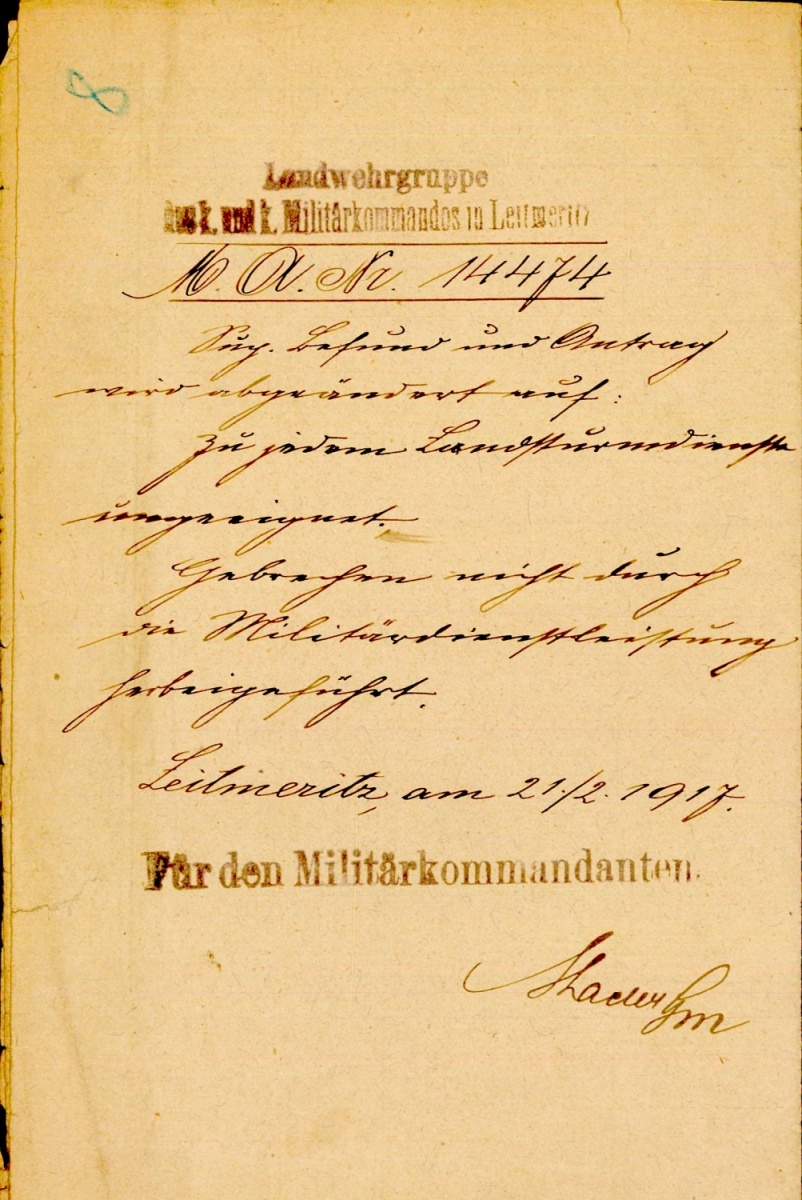 8
Landwehrgruppe
des k. und k. Militärkommandos in Leitmeritz
M. A. Nr. 14474
Sup. Befund und Antrag
wird abgeändert auf:
Zu jedem Landsturmdienste
ungeeignet.
Gebrechen nicht durch
die Militärdienstleistung
herbeigeführt.
Leitmeritz, am 21./2. 1917.
Für den Militärkommandanten.
Mader Gm